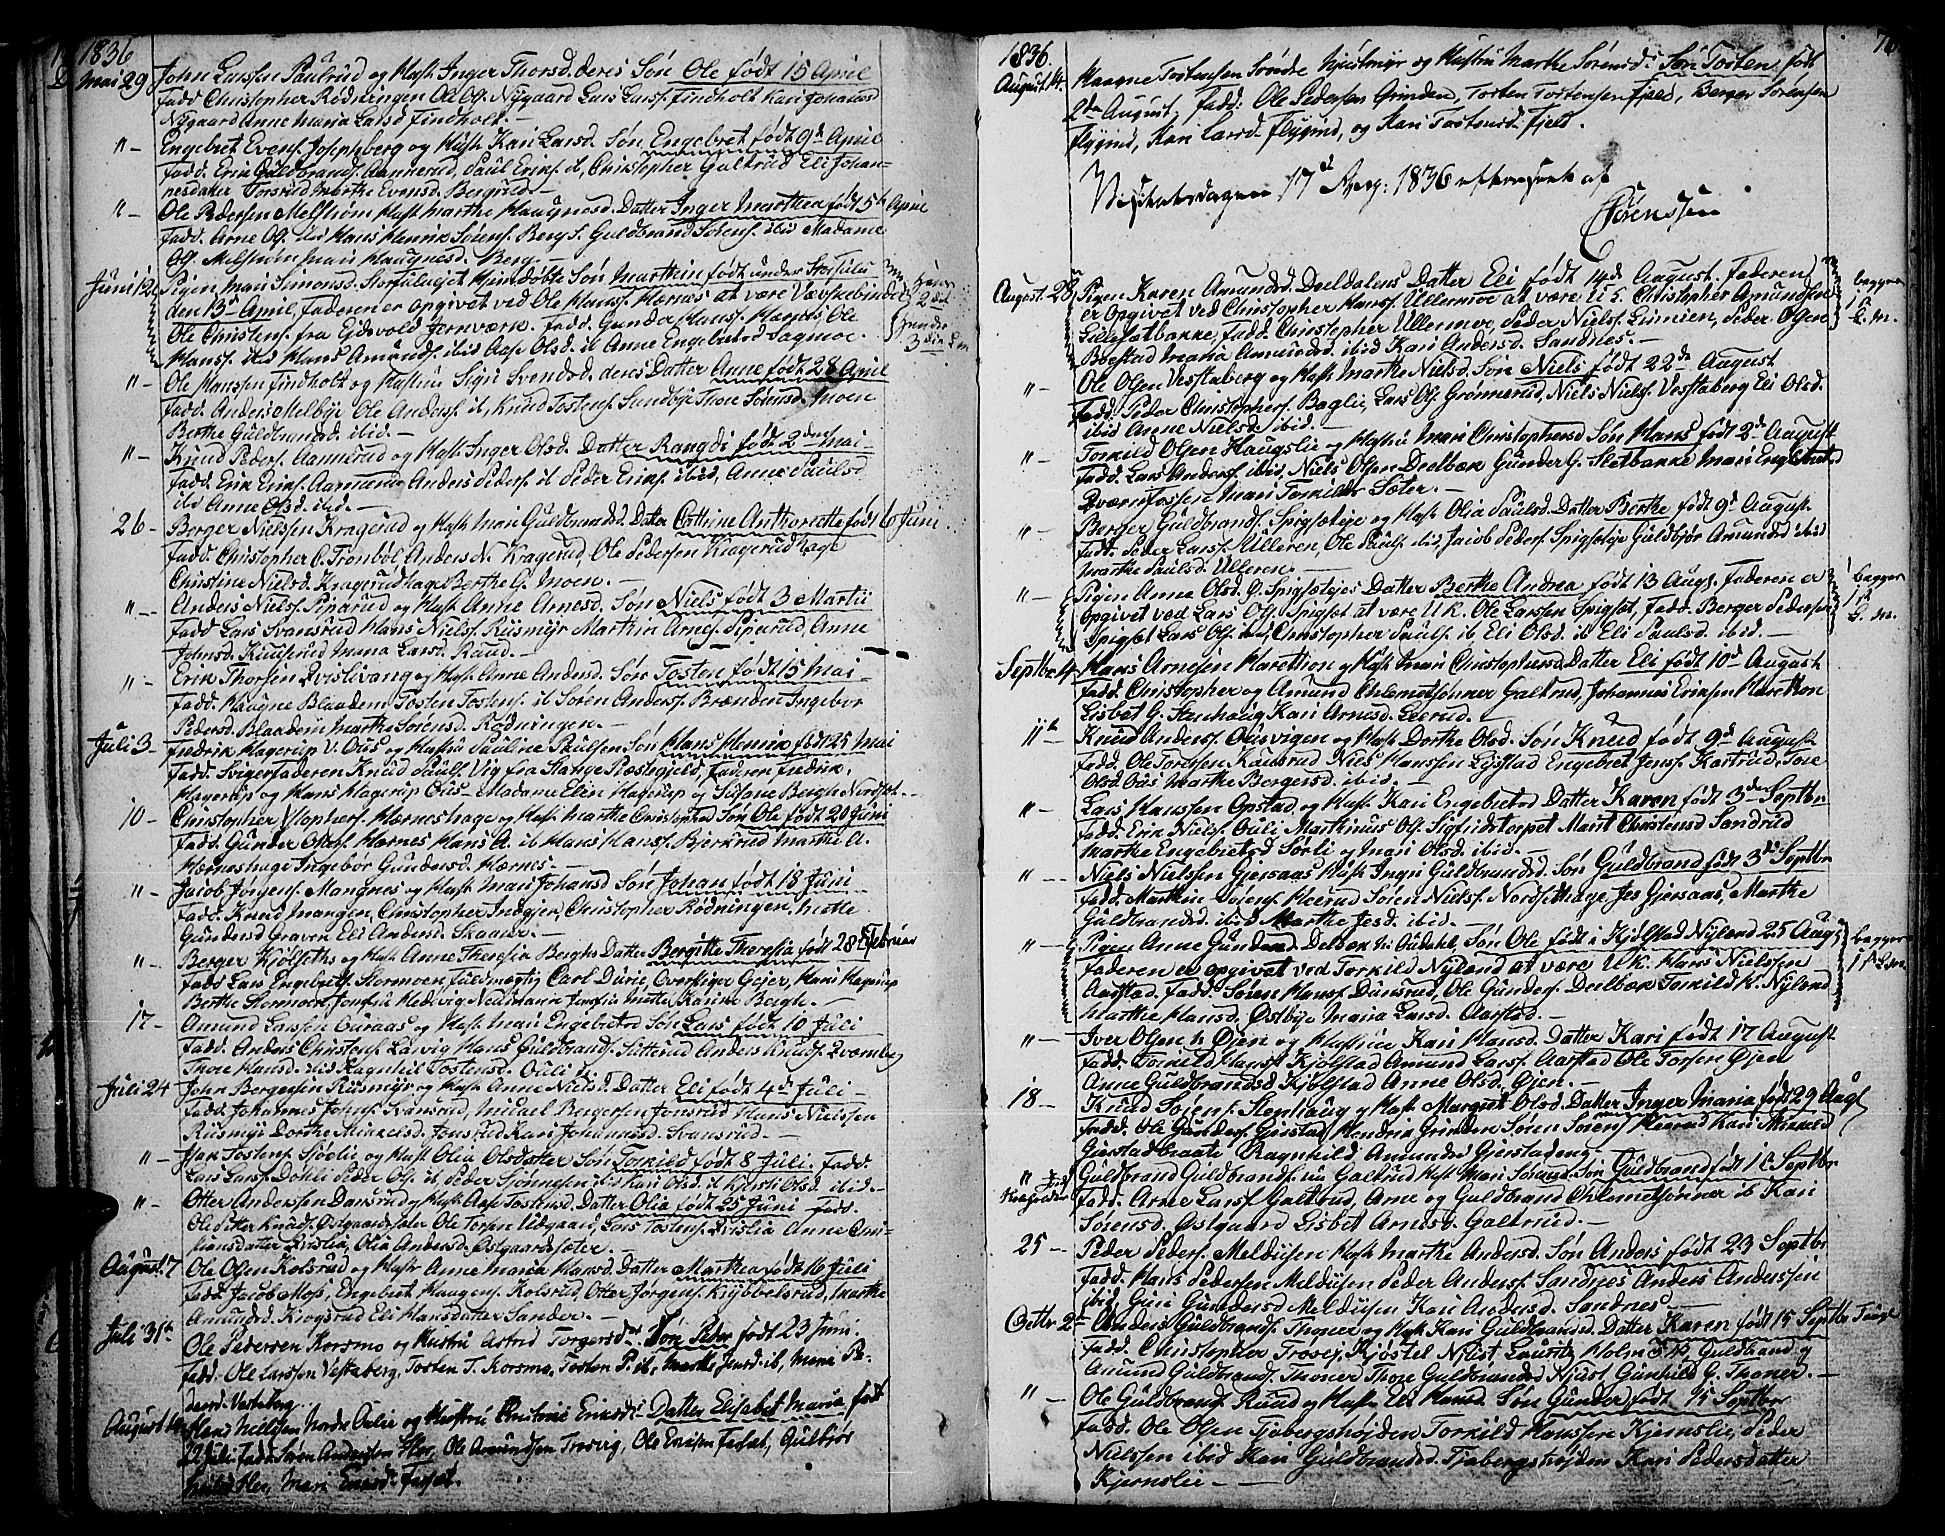 1836
Mai 29 John Larssen Paulrud og Hust. Inger Thorsd. deres Søn Ole født 15 April
Fadd Christopher Rødningen Ole Ols. Nygaard Lars Larss. Findholt Kari Johansd
Nygaard Anne Maria Larsd Findholt.
" – Engebret Evens. Josephberg og Hust. Kari Larsd. Søn Engebret født 9de April
Fadd. Erik Guldbrands. Aannerud, Paul Eriks. ib, Christopher Galtrud Eli Johan-
nesdatter Marthe Evensd. Bergerud.
" – Ole Pedersen Melstrøm Hust. Marthe Haagnesd. Datter Inger Marthea født 15de April
Fadd. Arne Ols. ibid Hans Henrik Sørens. Bergs. Guldbrand Sørens. ibid Madame
Ols. Melstrøm Mari Haagnesd. Berg. –
Juni 12 Pigen Mari Simonsd. Hjemdøbte Søn Marthin født under
den 13de April, Faderen er opgivet ved Ole Hanss. Hærnes at være
Ole Christens. fra Eidsvold Jernværk. Fadd. Gunder Hans. Hærnes Ole
Hanss. ibid Hans Amunds. ibid Aase Olsd. ib Anne Engebretsd Sagmoe.
" – Ole Hanssen Findholt og Hustru Sigri Svendsd. deres Datter Anne født 28 April
Fadd. Anders Melbye Ole Anders. ib, Knud Tostens. Sundbye Thore Sørensd. Moen
Berthe Guldbrandsd. ibid. –
" – Knud Peders. Aannerud og Hust. Inger Olsd. Datter Rangdi født 2den Mai –
Fadd. Erik Eriks. Aannerud Anders Peders. ib Peder Eriks. ibid, Anne Paulsd
ibid Anne Olsd. ibid. –
26 – Berger Nielssen Kragerud og Hust. Mari Guldbrandsd. Datter Cathrine Anthonette født 6 Juni.
Fadd. Christopher C. Trombol, Anders N. Kragerud, Ole Pedersen Kragerudhage
Christine Nielsd. Kragerudhage Berthe G. Moen. –
" – Anders Niels. Piparud og Hust. Anne Arnesd. Søn Niels født 3 Martii
Fadd Lars Svansrud Hans Niels. Riismyr Marthin Arnes. Piparud, Anne
Johnsd. Maria Larsd. Ruud. –
" – Erik Thorsen Qvislivang og Hust. Anne Andersd. Søn Tosten født 15 Mai –
Fadd. Haagne Blaadem Tosten Tostens. ib Søren Anders. Brænden Ingebor
Pedersd. Blaadem Marthe Sørensd. Rødningen. –
Juli 3 – Fredrik Hagerup V. Ous og Hustru Pauline Paulsen Søn Hans Henrik født 25 Mai
Fadd. Svigerfaderen Knud Pauls. Vig fra Stange Præstegjeld, Faderen Fredrik
Hagerup og Hans Hagerup Ous – Madame Elin Hagerup og Susane Bergh
10 – Christopher Hærneshage og Hust. Marthe Christophersd Søn Ole født 20 Juni
Fadd. Gunder Hærnes Hans A. ib Hans Hanss. Bjerkerud Marthe A.
Hærneshage Ingebor Gundersd. Hærnes. –
" – Jacob Jørgens. Mangnes og Hust. Mari Johansd Søn Johan født 18 Juni –
Fadd. Knud Mangen, Christopher Indgjer, Christopher Rødningen, Mette
Gundersd Graven Eli Andersd. Skaaner. –
" – Berger Kjølseths og Hust. Anne Theresia Berghs Datter Bergitte Theresia født 28 Februar
Fadd Lars Engebrets. Stormoen, Fuldmægtig Carl Dürie, Overstiger Geijer, Hans Hagerup
Berthe Stormoen, Jomfru Hedevig Neumann Jomfru Mette Karine Bergh. –
17 – Amund Larsen Ouraas og Hust. Mari Engebretsd Søn Lars født 10 Juli
Fadd. Anders Christens. Larvig Hans Guldbrands. Sitterud Anders Knuds.
Thore Hansd. ibid Ragnhil Tostensd. Ouli –
Juli 24 John Bergersen Riismyr og Hust. Anne Nielsd. Datter Eli født 4de Juli –
Fadd. Johannes Johns. Svansrud, Michael Bergersen Jonsrud Hans Nielsen
Riismyr Dorthe Mikkelsd. Jonsrud Kari Johannesd. Svansrud. –
" – Jon Tostens. Sjøelie og Hust. Olia Olsdatter Søn Torkild født 8 Juli. Fadd.
Lars Larss. Dohli Peder Ols. ib. Peder ibid Kari Olsd. ib Kjersti Olsd. ibid. –
" – Otter Andersen Dansrud og Hust. Aase Tostensd. Datter Olia født 25 Juni – Fadd.
Ole Otter Knuds. Østgaardsæter Ole Torsen Ødegaard, Lars Tostens. Qvislia Anne Chri-
stiansdatter Qvislia, Olia Andersd. Østgaardsæter. –
August 7 Ole Olsen Kolsrud og Hust. Anne Maria Hansd. Datter Marthea født 16 Juli
Fadd. Jacob Moss, Engebret Haagens. Kolsrud, Otter Jørgens. Knybbelsrud, Marthe
Amundsd Krogsrud Eli Hansdatter Sander. –
Juli 31te Ole Pedersen Korsmo og Hustru Astrid Torgersd. Søn Peder født 23 Juni.
Fadd. Ole Larssen Vestaberg, Tosten T. Korsmo, Tosten P. ib, Marthe Jensd. ib, Mari Pe-
dersd. Vestaberg.
August 14 Hans Nilssen Nordre Oulie og Hustru Eriksd. Datter Elisabet Maria født
22 Juli. Fadd. Søren Andersen Hser, Ole Amundsen Trosvig, Ole Eriksen Fasset, Gulbrør
Hser, Mari Eriksd. Fasset.
1836
August 14. Haagne Tostensen Søndre Njustmyr og Hustru Marthe Sørensd. Søn Tosten, født
2den August, Fadd: Ole Pedersen Grinden, Tosten Tostensen Fjeld, Berger Sørensen
Flygind, Kari Larsd. Flygind, og Kari Tostensd. Fjeld.
Visitatsdagen 17de Aug: 1836 efterseet af
Sørenssen
August. 28 Pigen Karen Amundsd. Deeldalens Datter Eli født 14de August. Faderen
er opgivet ved Christopher Hanss. Ullermoe at være U. S. Christopher Amundsen
Lillesætbakke, Fadd. Christopher Ullermoe, Peder Niels. Linnien, Peder Olsen
Bogstad Maria Amundsd. ibid Kari Andersd. Sandnes. –
" – Ole Olsen Vesstaberg og Hust. Marthe Nielsd. Søn Niels født 22de August
Fadd. Peder Christophers. Baglie, Lars Ols. Grønnerud, Niels Niels. Vesstaberg Eli Olsd.
ibid Anne Nielsd. ibid. –
" – Torkild Olsen Haugslie og Hustru Mari Christophersd Søn Hans født 2de August
Fadd. Lars Anders. ibid, Niels Olsen Deelbæk Gunder G. Sletbakke Mari Engebretsd
Qværnfossen Mari Torkildsd Sæter. –
" – Berger Guldbrands. Spigsæteje og Hust. Olia Paulsd. Datter Berthe født 9de August.
Fadd. Peder Larss. Ulleren, Ole Pauls. ibid, Jacob Peders. Spigsæteje Guldbjør Amundsd ibid
Marthe Paulsd. Ulleren. –
" – Pigen Anne Olsd. Ø. Spigsætejes Datter Berthe Andrea født 13 Augs. Faderen er
opgivet ved Lars Ols. Spigsæt at være U. K. Ole Larssen Spigsæt, Fadd. Berger Pedersen
Spigsæt Lars Ols. ibid, Christopher Pauls. ib Eli Olsd. ib Eli Paulsd. ibid. –
Septbr. 4 Hans Arnesen Harethon og Hust. Mari Christophersd. Datter Eli født 10de August
Fadd. Christopher og Amund Ehlemetsønner Galtrud, Johannes Eriksen Harethon
Lisbet G. Stenhaug Kari Arnesd. Leerud. –
11te Knud Anders. Ousvigen og Hust. Dorthe Olsd. Søn Knud født 9de August
Fadd. Ole Torgessen Kausrud Niels Hanssen Lystad Engebret Jens. Kastrud, Tore
Olsd Ous Marthe Bergersd. ibid. –
" – Lars Hanssen Opstad og Hust. Kari Engebretsd Datter Karen født 3de Septbr
Fadd. Erik Niels. Ouli Marthinus Ols. Sigfridstorpet Marit Christensd Sandrud
Marthe Engebretsd Sørli og Mari Olsd. ibid. –
" – Niels Nielsen Gjersaas Hust. Ingri Guldbrandsd. Søn Guldbrand født 3de Septbr
Fadd. Marthin Sørens. Heerud Søren Niels. Nordset Hage Jes Gjersaas, Marthe
Guldbrandsd. ibid Marthe Jesd. ibid. –
" – Pigen Anne Gundersd. Delbæk Søn Ole født i Kjølstad Nyland 25 Augs
Faderen er opgivet ved Torkild Nyland at være U. K. Hans Nielssen
Aarstad. Fadd. Søren Hanss. Dansrud, Ole Gunders. Deelbæk Torkild K. Nyland
Marthe Hansd. Østbye Maria Larsd. Aarstad. –
" – Iver Olsen Øjen og Hustrue Kari Hansd. Datter Kari født 17 August
Fadd. Torkild Hanss. Kjølstad Amund Larss. Aarstad Ole Torsen Øjen
Anne Guldbrandsd Kjølstad Anne Olsd. Øjen. –
18 – Knud Sørens. Stenhaug og Hust. Margret Olsd. Datter Inger Maria født 29 Augs
Fadd. Ole Gunders. Gjerstad, Hendrik Grinden Søren Sørens. Heerud Kari Mikkelsd
Gjerstadbraate Ragnhild Amundsd Gjerstadeng. –
" Guldbrand Guldbrands. Galtrud Hust. Mari Sørensd. Søn Guldbrand født 10 Septbr
Fadd. Arne Larss. Galtrud, Arne og Guldbrand Ehlemetsønner ib Kari
Sørensd. Østgaard Lisbet Arnesd. Galtrud. –
25 – Peder Peders. Melduusen Hust. Marthe Andersd. Søn Anders født 23 Septbr
Fadd. Hans Pedersen Melduusen Peder Anders. Sandnes Anders Anderssen
ibid Guri Gundersd Melduusen Kari Andersd. Sandnes.
Octbr 2den Anders Guldbrands. Thoner og Hust. Kari Guldbrandsd. Datter Karen født 15 Septbr
Fadd. Christopher Trosvig, Kjøstel Njust Lauritz Holm Guldbrand og
Amund Guldbrands. Thoner Thore Guldbrandsd Njust Gunhild G. Thoner. –
" – Ole Guldbrands. Ruud og Hust. Eli Hansd. Søn Gunder født 15 Septbr
Fadd. Ole Olsen Tjabergshøjden Torkild Hanssen Kjernslie, Peder
Nielssen ibid Kari Guldbrandsd. Tjabergshøjden Kari Pedersdatter
Kjernslie –